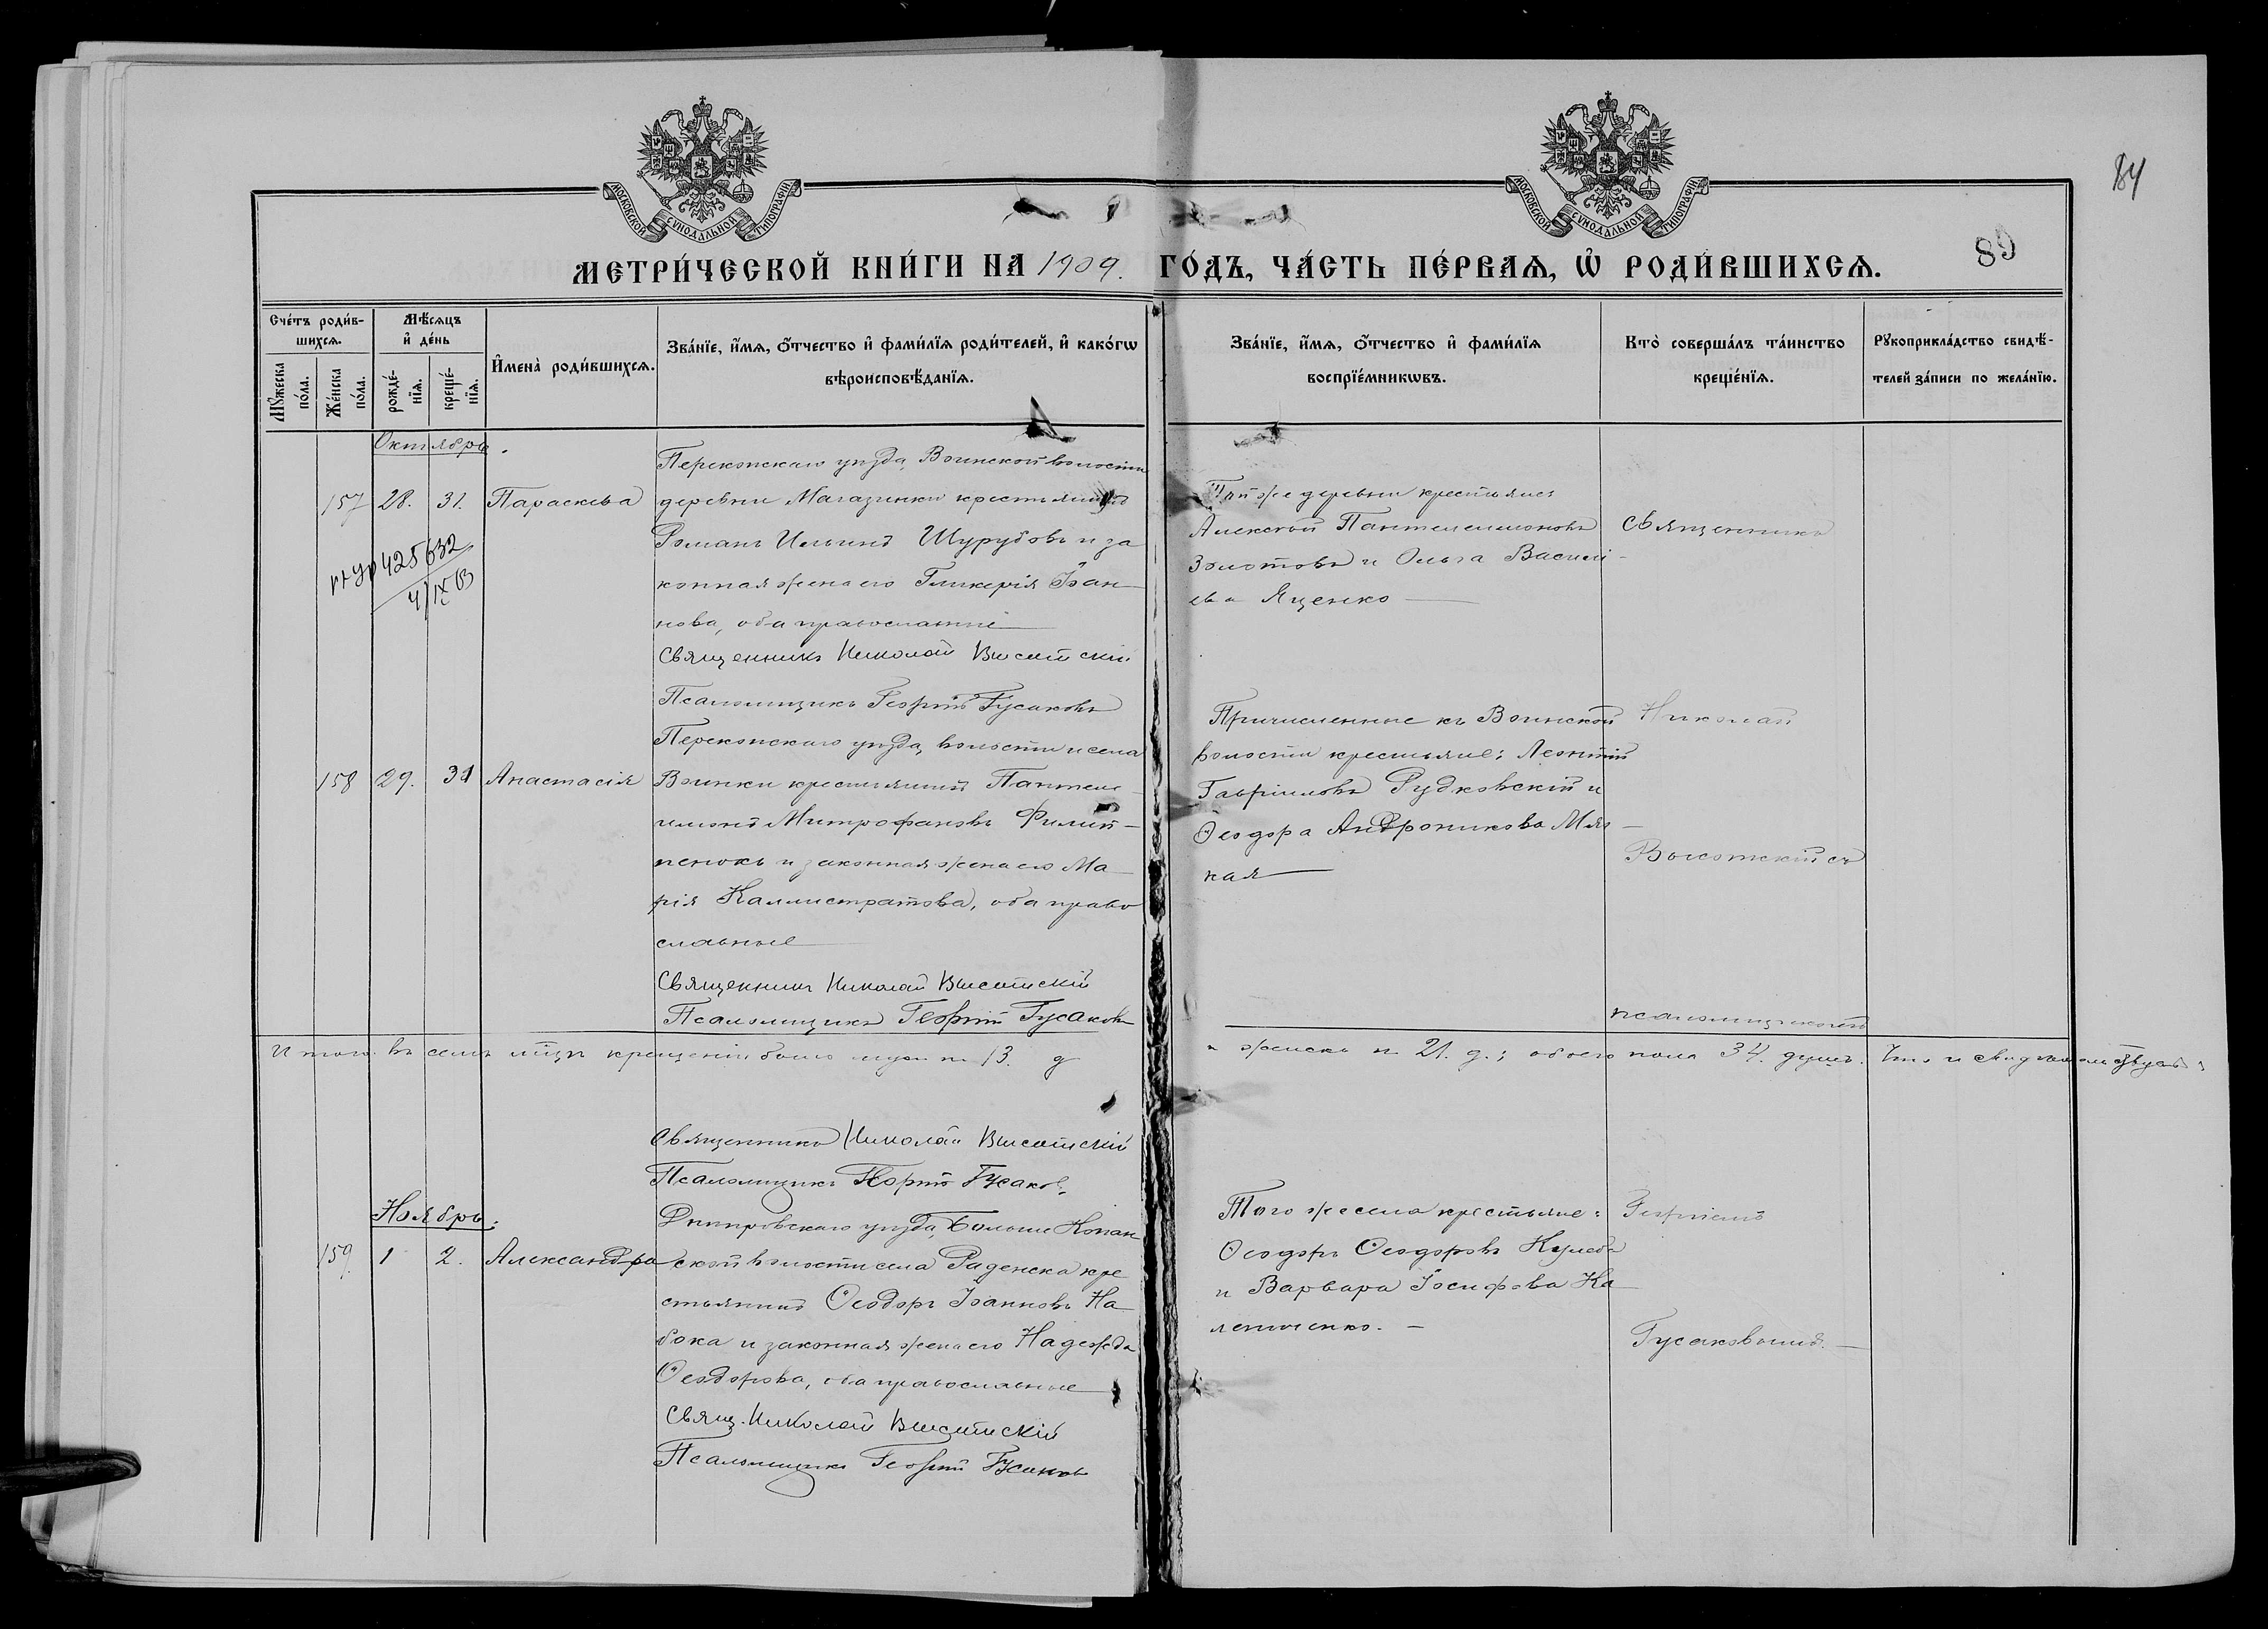 МОСКОВСКОЙ СѴНОДАЛЬНОЙ ТИПОГРАФІИ
МОСКОВСКОЙ СѴНОДАЛЬНОЙ ТИПОГРАФІИ
84
89
МЕТРИ́ЧЕСКОЙ КНИ́ГИ НА 1909. ГО́ДЪ, ЧА́СТЬ ПЕ́РВАѦ, Ѡ҆ РОДИ́ВШИХСѦ.
Сче́тъ роди́в-
шихсѧ.
Мꙋ́жеска по́ла.
Же́нска по́ла.
Мѣ́сѧцъ
и҆ де́нь
рожде́-
нїѧ.
креще́-
нїѧ.
И҆мена̀ роди́вшихсѧ.
Зва́нїе, и҆́мѧ, ѻ҆́тчество и҆ фами́лїѧ роди́телей, и҆ како́гѡ
вѣроисповѣ́данїѧ.
Зва́нїе, и҆́мѧ, ѻ҆́тчество и҆ фами́лїѧ
воспрїе́мникѡвъ.
Кто̀ соверша́лъ та́инство
креще́нїѧ.
Рꙋкоприкла́дство свидѣ́-
телей за́писи по жела́нїю.
Октябрь.
Перекопскаго уѣзда, Воинской волости
157 28. 31. Параскева
деревни Магазинки крестьянинъ
Романъ Ильинъ Шурубовъ и за
конная жена его Гликерія Іоан
нова, оба православные
425632
4/IX
Священникъ Николай Высотскій
Псаломщикъ Георгій Гусаковъ
Той же деревни крестьяне:
Алексѣй Пантелеимоновъ
Золотовъ и Ольга Василі-
ева Яценко
Священникъ
Перекопскаго уѣзда, волости и села
158 29. 31 Анастасія
Воинки крестьянинъ Пантеле-
имонъ Митрофановъ Филип-
пенокъ и законная жена его Ма-
рія Каллистратова, оба право
славные
Священникъ Николай Высотскій
Псаломщикъ Георгій Гусаковъ
Причисленные къ Воинской
волости крестьяне: Леонтій
Гавріиловъ Рудковскій и
Ѳеодора Андроникова Мяг-
кая
Николай
Высотскій съ
псаломщикомъ
Итого въ семъ м-цѣ крещенія было муж. п. 13. д
и женск. п. 21. д.; обоего пола 34. душъ. Что и свидѣтельствуемъ:
Священникъ Николай Высотскій
Псаломщикъ Георгій Гусаковъ
Ноябрь.
Днѣпровскаго уѣзда, Больше Копан
159 1 2. Александра
ской волости села Раденска кре
стьянинъ Ѳеодоръ Іоанновъ На
бока и законная жена его Надежда
Ѳеодорова, оба православные
Свящ. Николай Высотскій
Псаломщикъ Георгій Гусаковъ
Того же села крестьяне:
Ѳеодоръ Ѳеодоровъ Кулеба
и Варвара Іосифова Ка
лениченко.
Георгіемъ
Гусаковымъ.